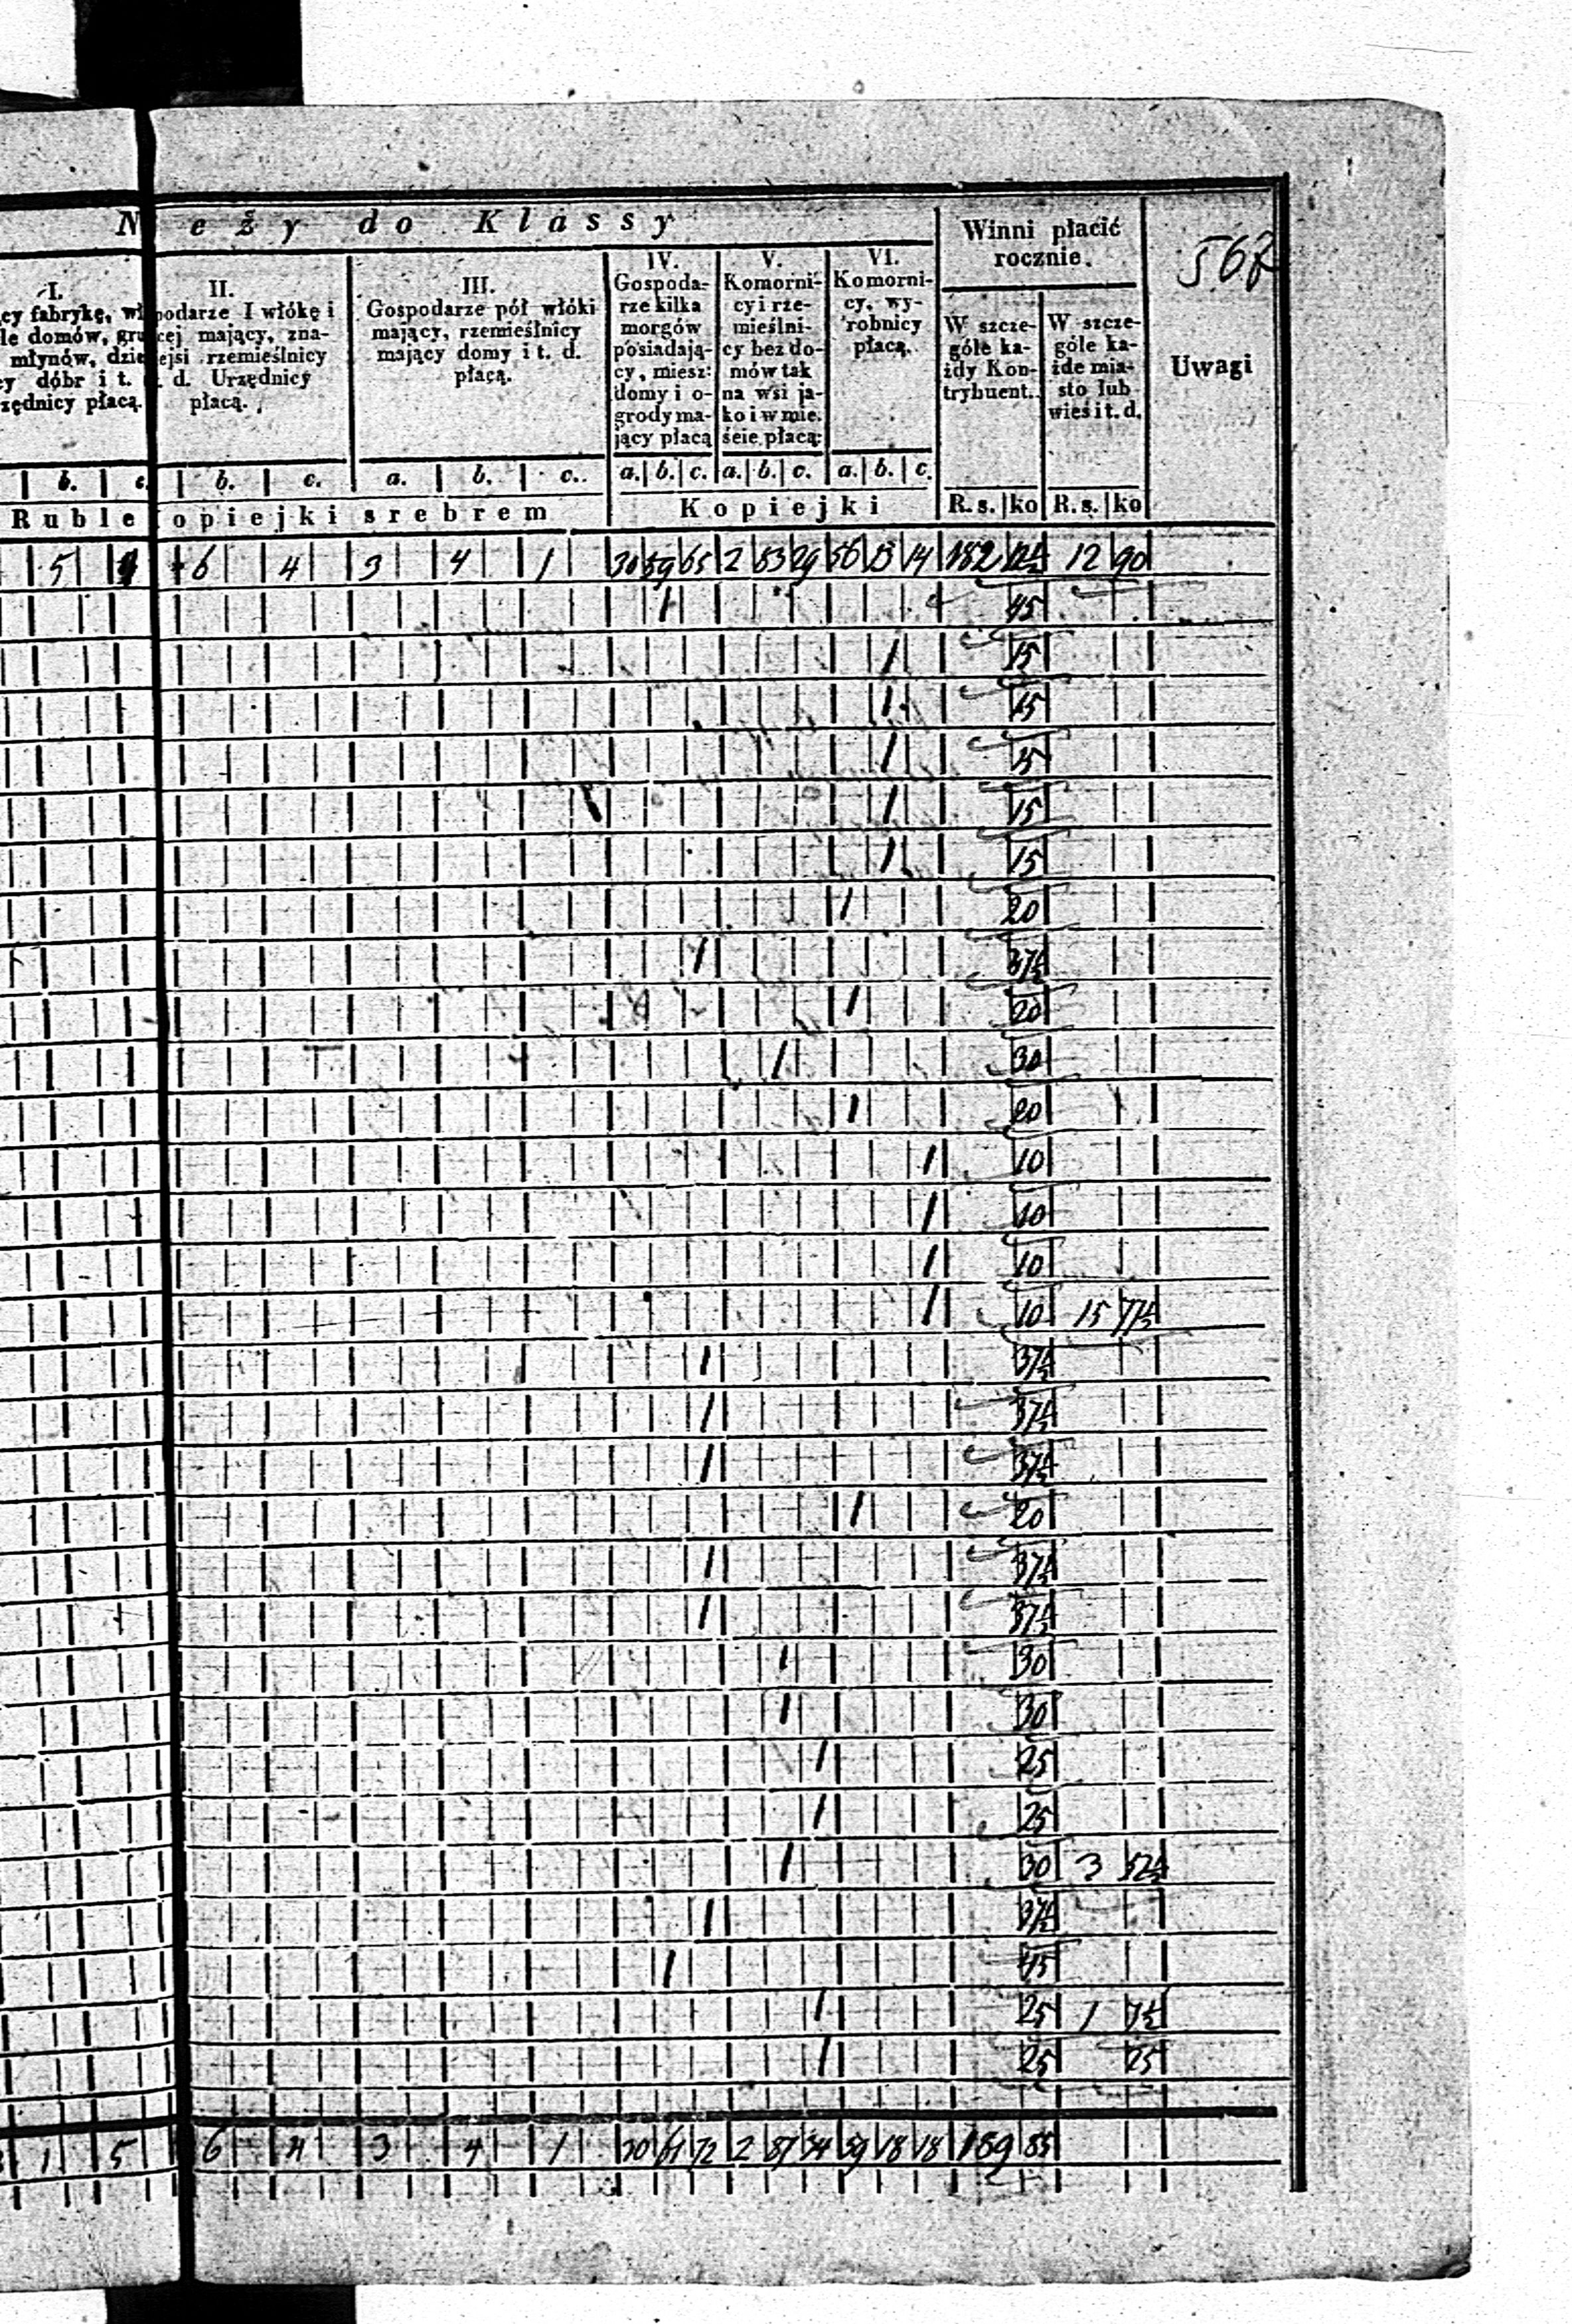 N eży do Klassy
Winni płacić rocznie.
567
I.
cy fabrykę, wł
le domów, gru
młynów, dzie
cy dóbr i t. d.
zędnicy płacą.
II.
podarze I włókę i
cej mający, zna-
ejsi rzemieślnicy
d. Urzędnicy
płacą.
III.
Gospodarze pół włóki
mający, rzemieślnicy
mający domy i t. d.
płacą.
IV.
Gospoda-
rze kilka
morgów
posiadają-
cy, miesz:
domy i o-
grody ma-
jący płacą
V.
Komorni-
cy i rze-
mieślni-
cy bez do-
mów tak
na wsi ja-
ko i w mie.
ście płacą:
VI.
Komorni-
cy, wy-
robnicy
płacą.
W szcze-
góle ka-
żdy Kon-
trybuent.
W szcze-
góle ka-
żde mia-
sto lub
wieś i t. d.
Uwagi
b. c. b. c. a. b. c. a. b. c. a. b. c. a. b. c.
Ruble opiejki srebrem Kopiejki R. s. ko R. s. ko
5 6 4 3 4 1 30 59 65 2 83 29 56 13 14 182 12½ 12 90
1 45
1 15
1 15
1 15
1 15
1 15
1 20
1 37½
1 20
1 30
1 20
1 10
1 10
1 10
1 10 15 77½
1 37½
1 37½
1 37½
1 20
1 37½
1 37½
1 30
1 30
1 25
1 25
1 30 3 52½
1 37½
1 45
1 25 1 7½
1 25 25
1 5 6 4 3 4 1 30 61 72 2 87 34 59 18 18 189 85